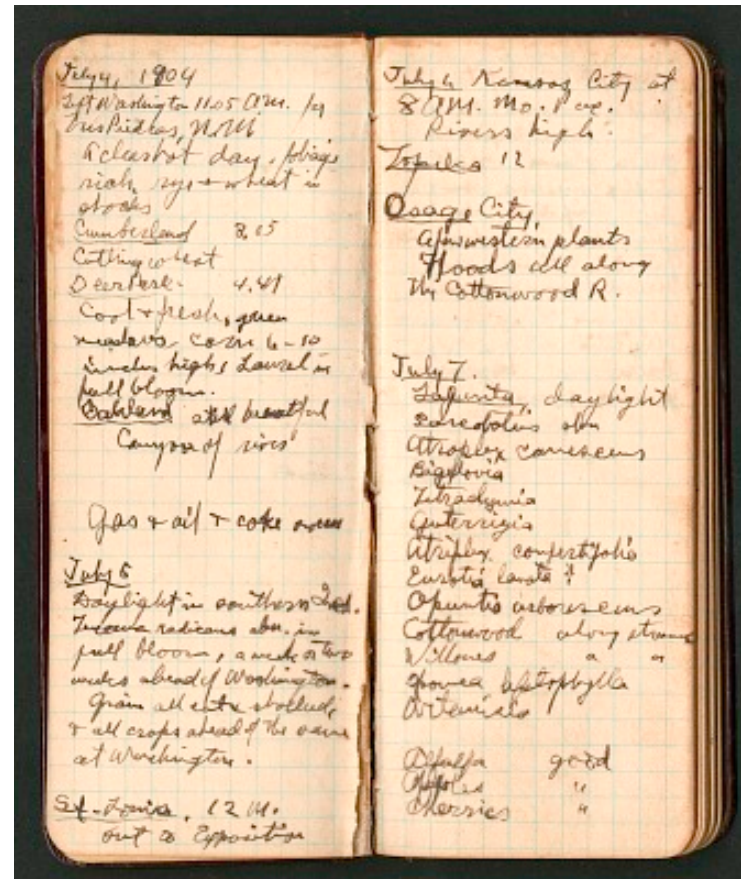 July 4, 1904
Left Washington 11.05 A.M. for
Tres Piedras, N.M.
A clear hot day, foliage
rich, rye & wheat in
shocks
Cumberland 3.05
Cutting wheat
Deer Park - 4.41
Cool & fresh, green
meadows corn 6-10
inches high, Laurel in
full bloom.
Oakland all beautiful
Canyon of river
Gas & oil & coke ovens
July 5
Daylight in southern Ind.
Tecoma radicans abu. in
full bloom, a week or two
weeks ahead of Washington.
Grain all cut & shocked
& all crops ahead of the same
at Washington.
St. Louis, 12 M.
out to Exposition
July 6 Kansas City at
8 A.M. Mo. Pac.
Rivers high.
Topeka 12
Osage City,
a few western plants
Floods all along
the Cottonwood R.
July 7.
La Junta, daylight
abu
Atriplex canescens
Bigelovia
Tetradymia
Guterrizia
Atriplex confertifolia
Eurotia lanata ?
Opuntia arborescens
Cottonwood along streams
Willows " "
Artemisia
Alfalfa good
Apples "
Cherries "